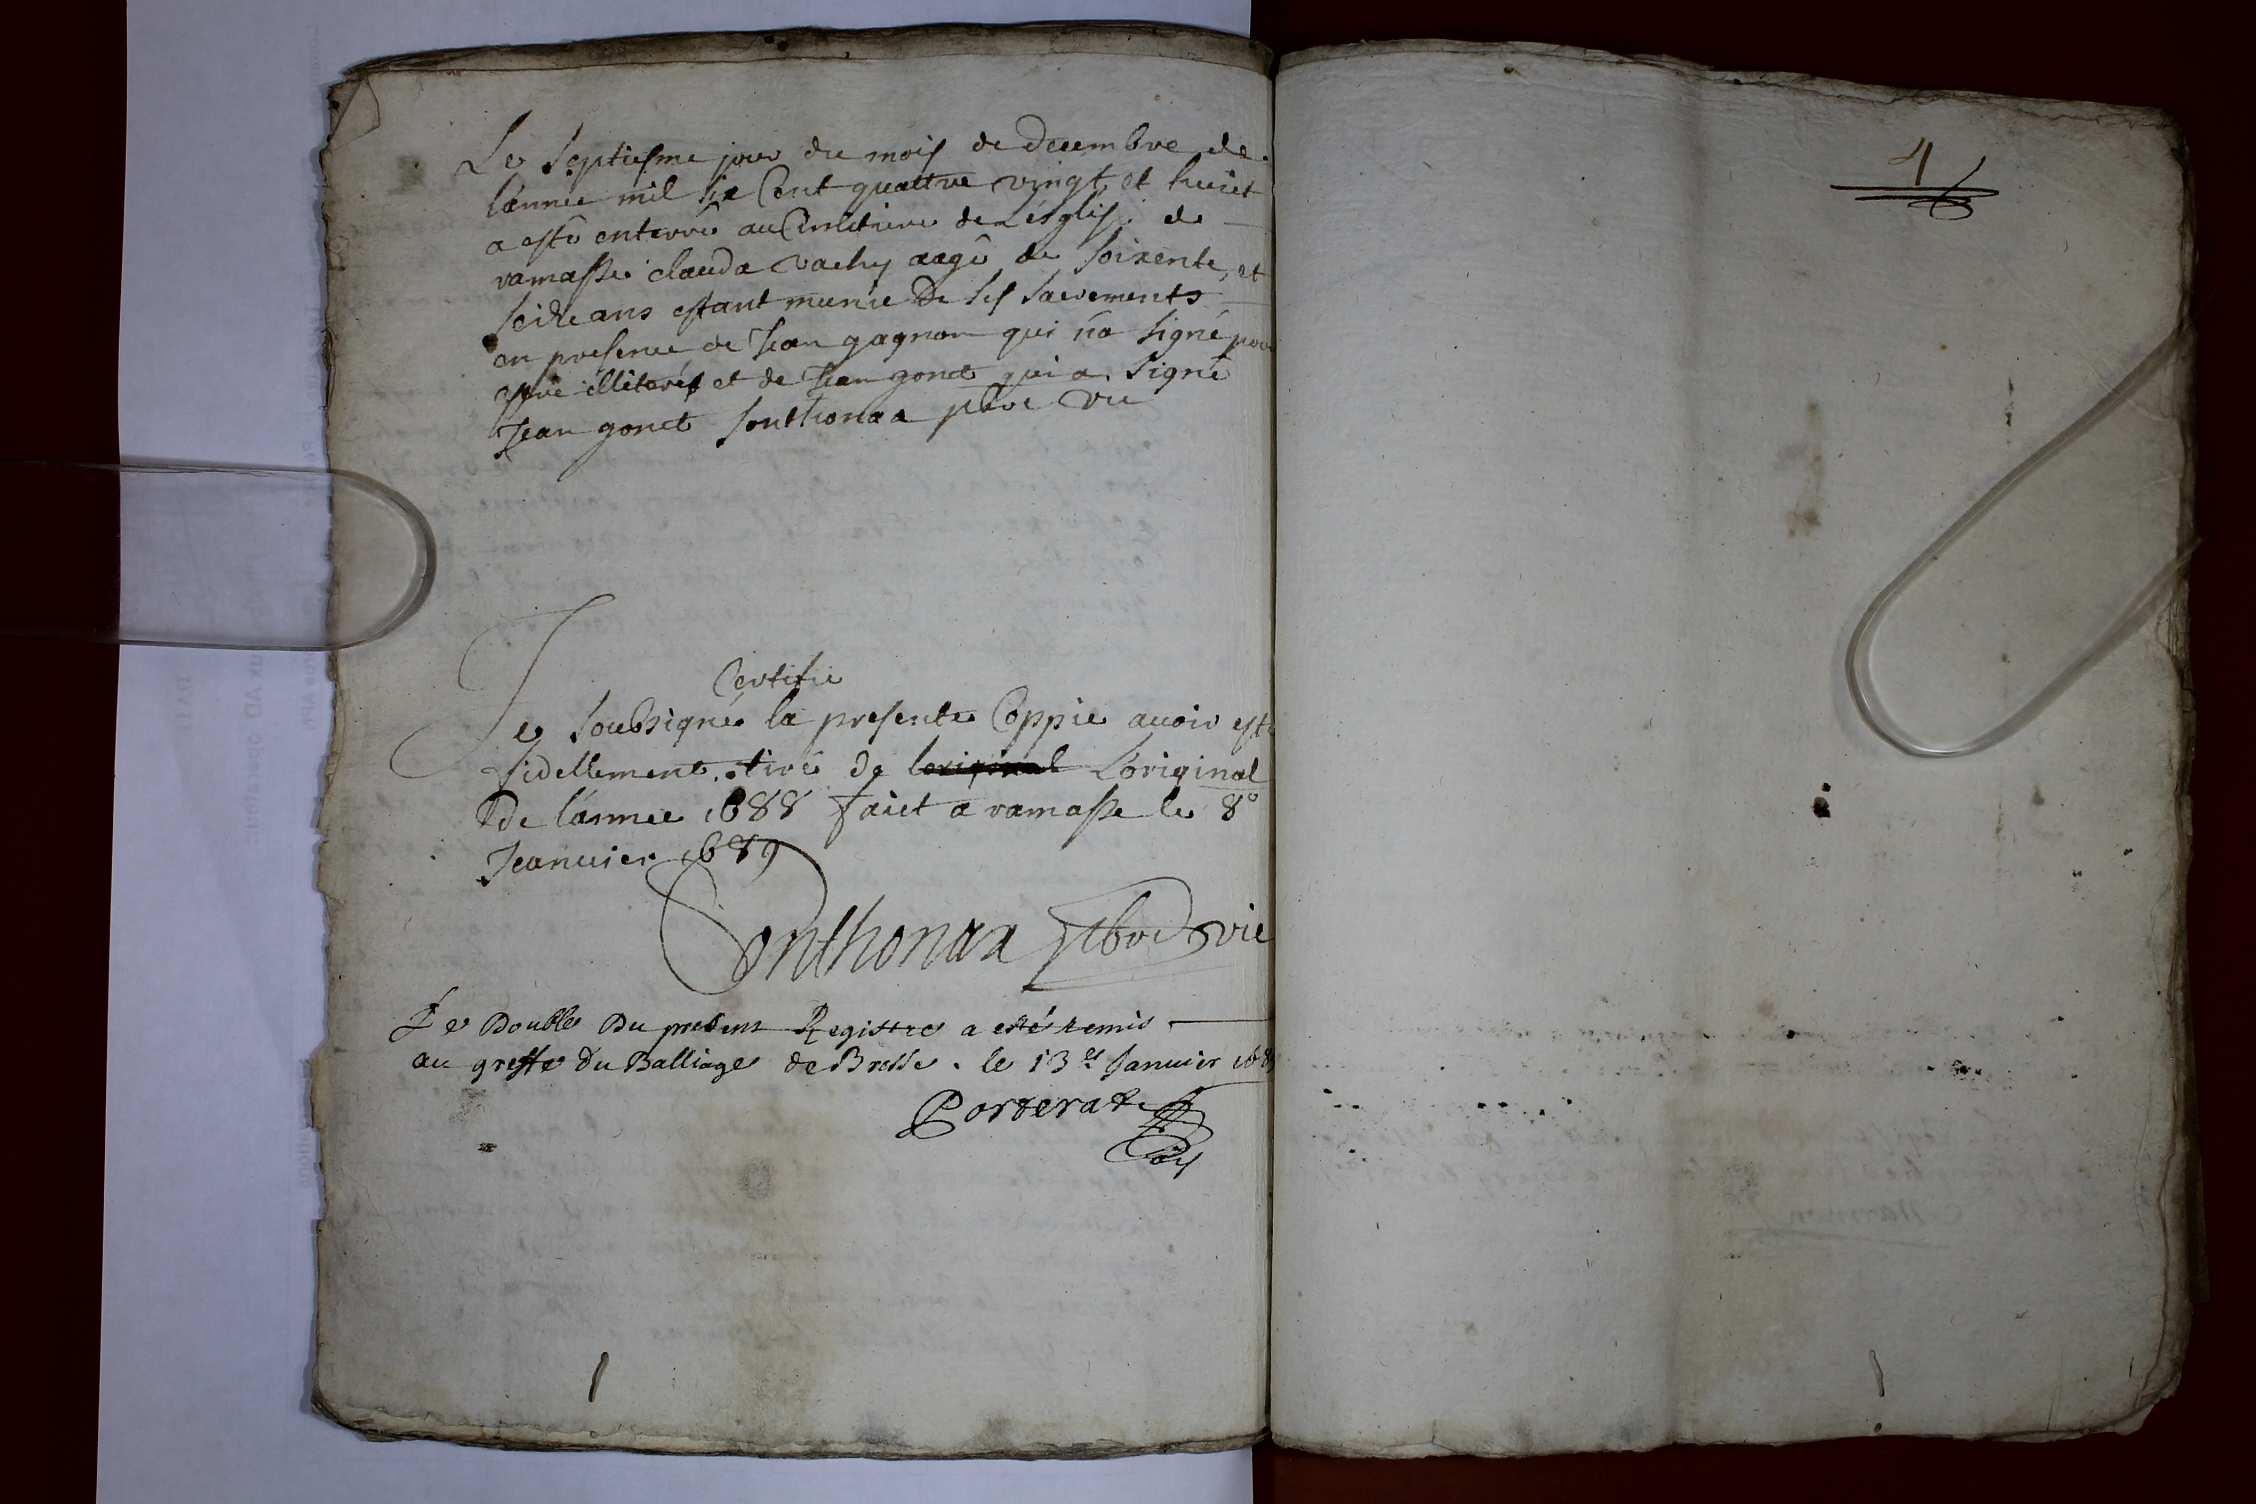 Le Septiesme jour du mois de decembre de
l'annee mil six Cent quattre vingt et huict
a esté enterré au Cimitiere de L'esglise de
ramasse clauda vachy aagé de soixente et
seize ans estant munie de ses sacrements
en presence de Jean gagnon qui n'a signé pour
estre illiteré et de Jean gonet qui a signé
Jean gonet Sonthonaa pbre vic
Certifie
Je soubsigné la presente Coppie auoir esté
fidellement tiré de loriginal L'original
de l'annee 1688 faict a ramasse le 8°
Jeanuier 1689
Sonthonaa pbre vic
Le Double Du present Registre a esté remis
au greffe Du Balliage de Bresse . le 13e Januier 168
Porterat
4